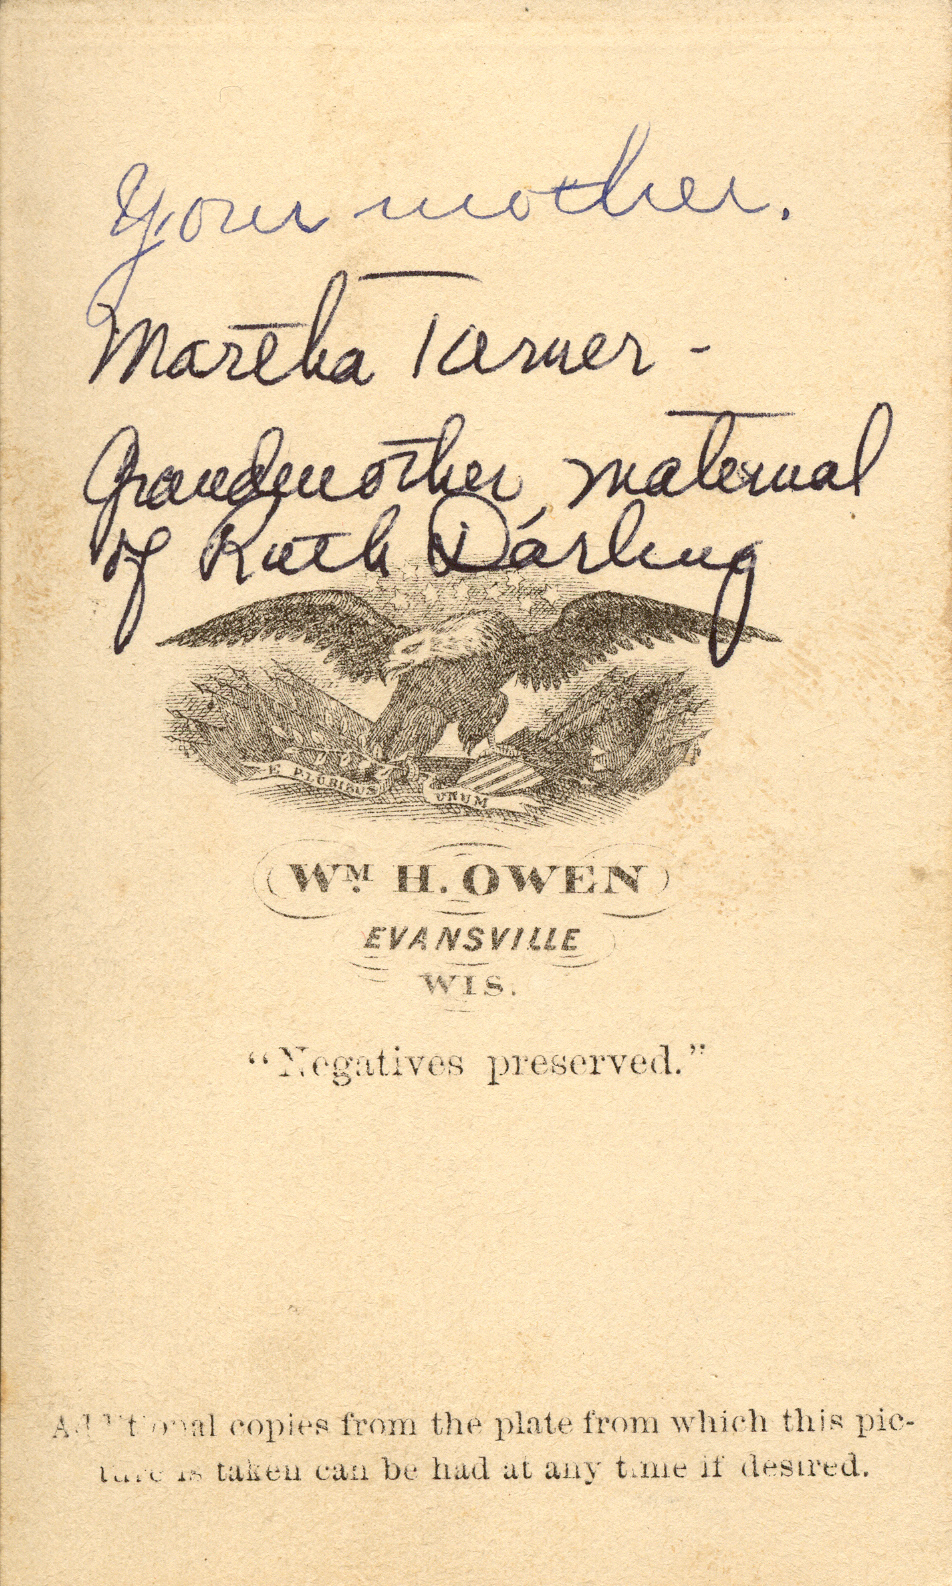 Your mother.
Martha Turner -
Grandmother, maternal
of Ruth Darling
E PLURIBUS UNUM
WM. H. OWEN
EVANSVILLE
WIS.
“Negatives preserved.”
Additional copies from the plate from which this pic-
ture is taken can be had at any time if desired.